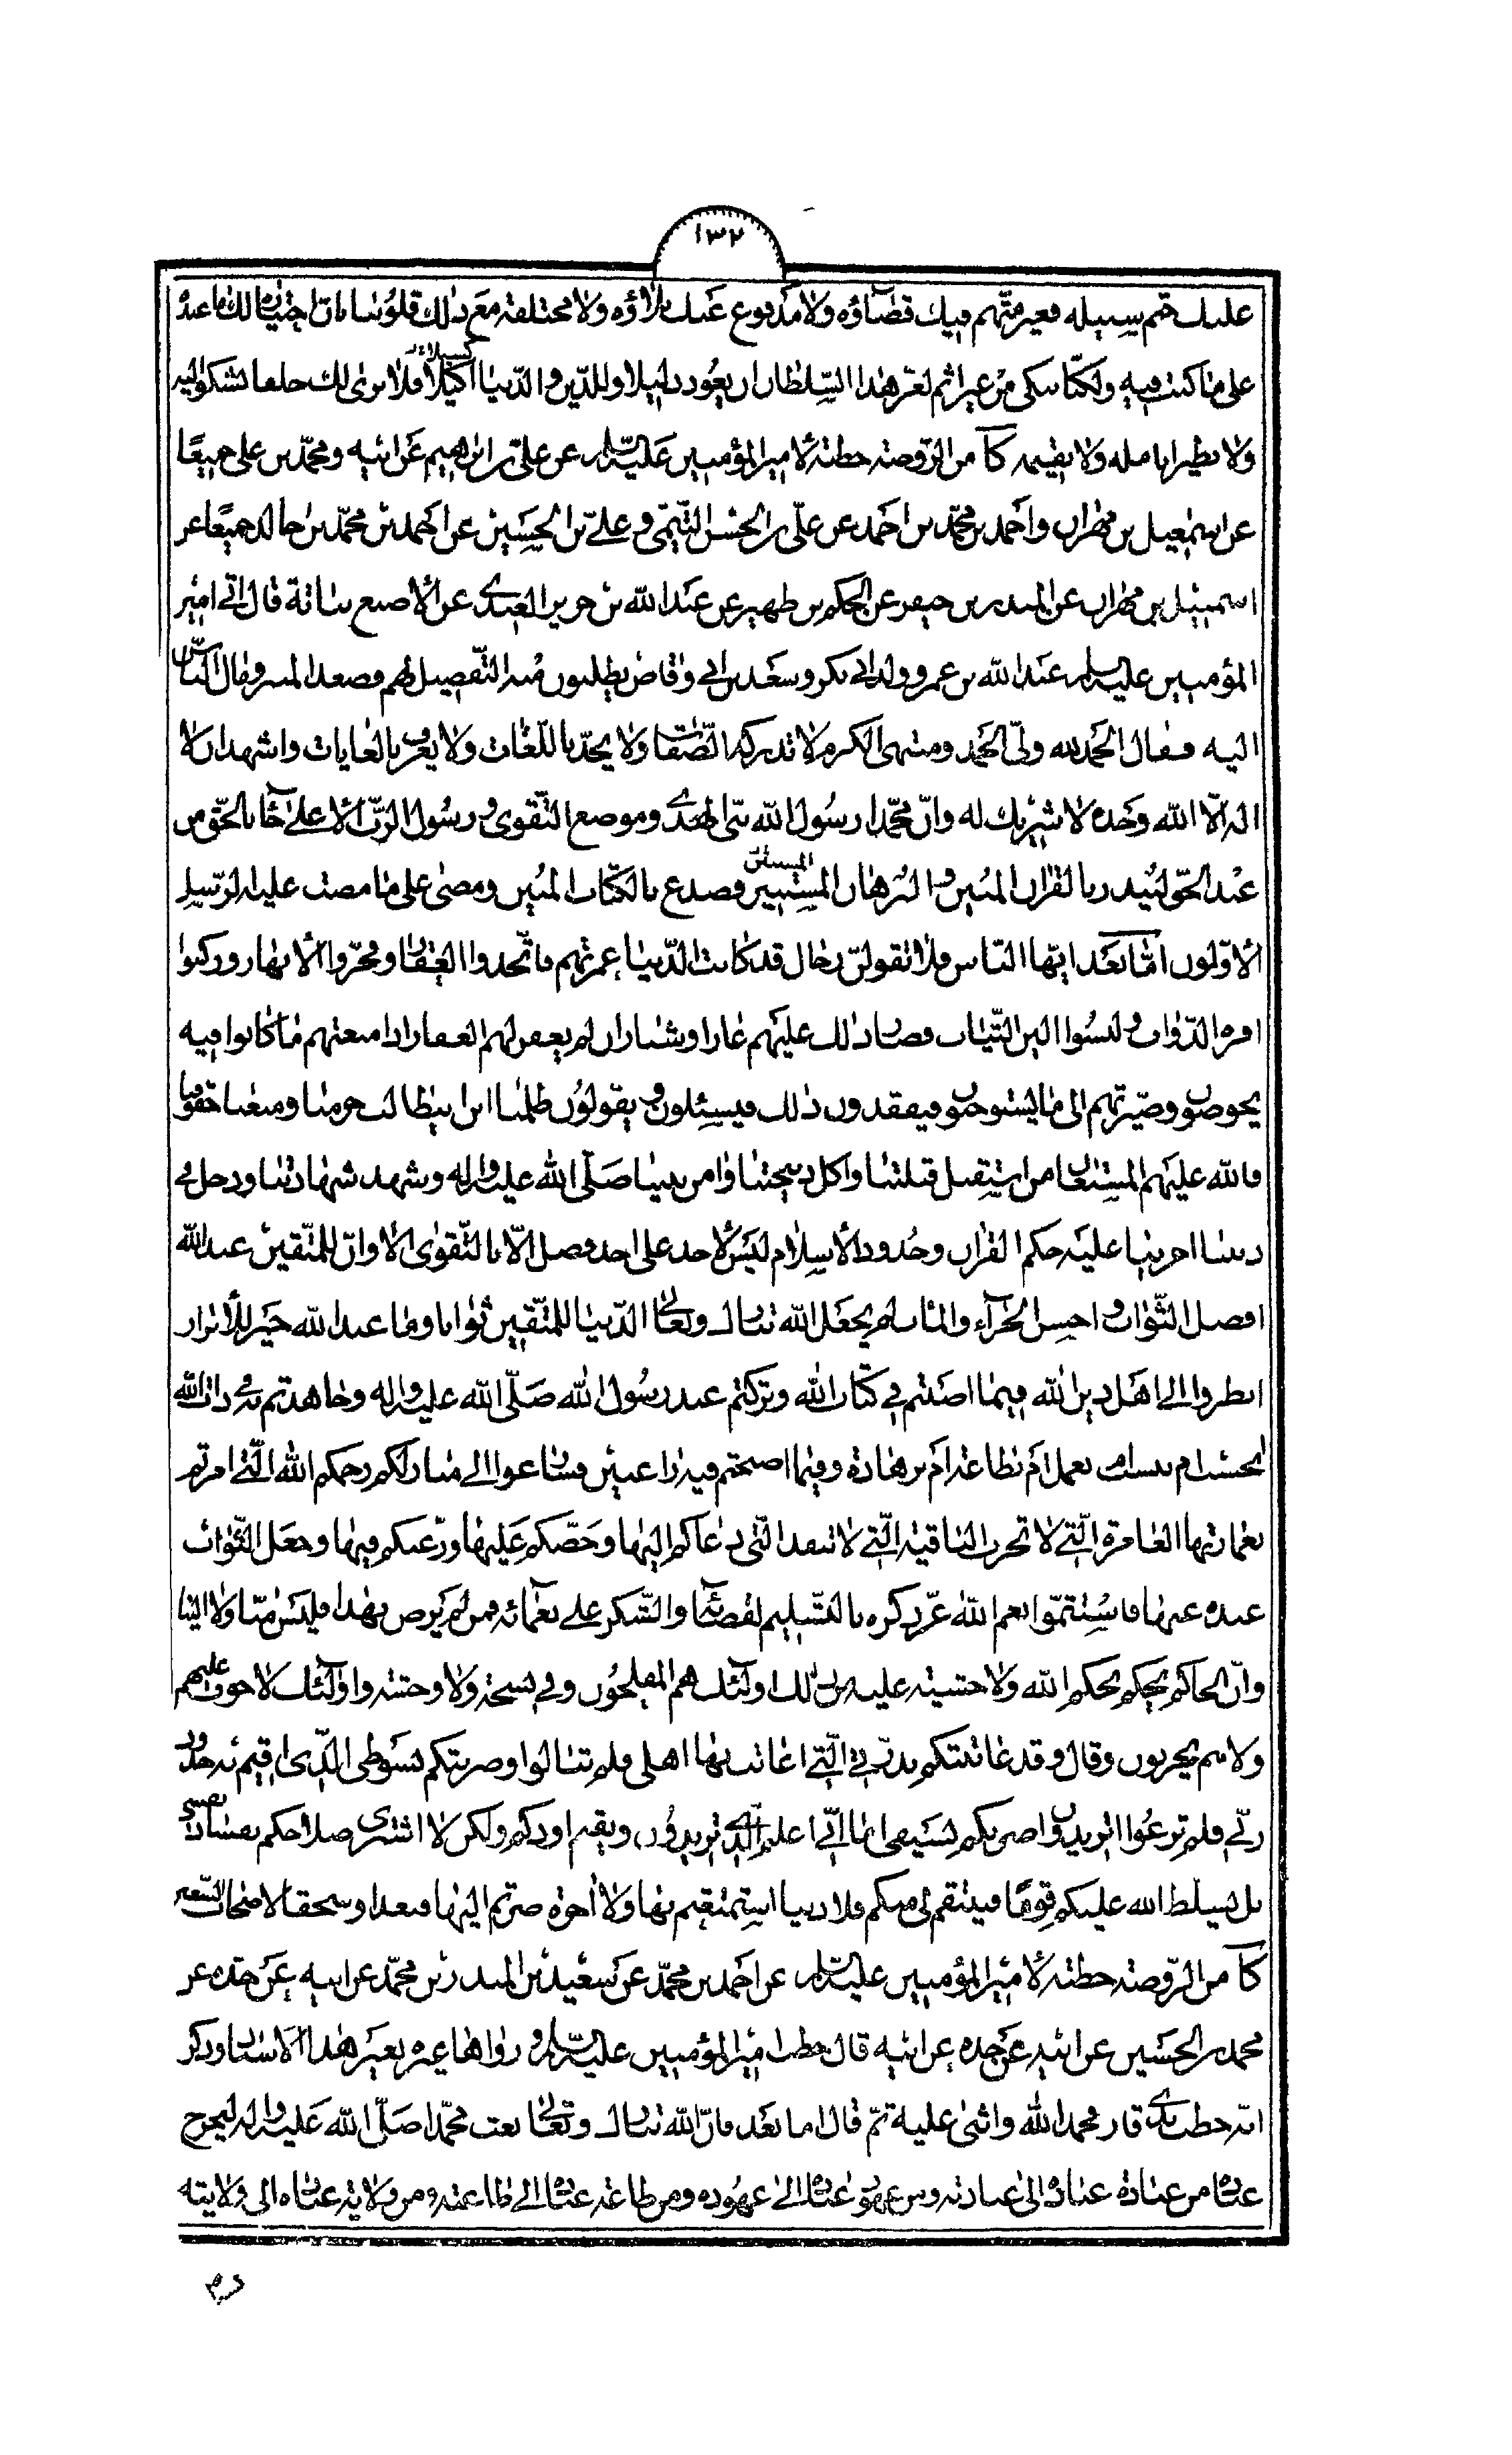 ١٣٢
عليك حتم سبيله فغير متّهم فيك قضاؤه ولا مدفوع عنك بلاؤه ولا مختلفة مع ذلك قلوبنا بانّ اختيارنا لك ما عنده
على ما كنت فيه ولكنّا نبكى من غير اثم لعزّ هذا السّلطان ان يعود ذليلا وللدّين والدّنيا اكيلا فلا نرى لك خلفا نشكوا اليه
ولا نظيرا نامله ولا نقيمه كا من الرّوضة خطبة لامير المؤمنين عليه السلم عن علىّ بن ابراهيم عن ابيه ومحمّد بن على جميعًا
عن اسمعيل بن مهران واحمد بن محمّد بن احمد عن علىّ بن الحسن التّيمى وعلىّ بن الحسين عن احمد بن محمّد بن خالد جميعًا عن
اسمعيل بن مهران عن المنذر بن جيفر عن الحكم بن ظهير عن عبد الله بن حرير العبدى عن الأصبغ بن نباتة قال اتى امير
المؤمنين عليه السلم عبد الله بن عمر وولد ابى بكر وسعد بن ابى وقاص يطلبون منه التّفصيل لهم فصعد المنبر ومال النّاس
اليه فقال الحمد لله ولىّ الحمد ومنتهى الكرم لا تدركه الصّفات ولا يحدّ باللّغات ولا يعرف بالغايات واشهد ان لا
اله الّا الله وحده لا شريك له وانّ محمّدا رسول الله نبىّ الهدى وموضع التّقوى ورسول الرّبّ الاعلى جاء بالحقّ من
عند الحقّ لينذر بالقران المبين والبرهان المستبين فصدع بالكتاب المبين ومضى على ما مضت عليه الرّسل
الأوّلون امّا بعد ايّها النّاس فلا تقولنّ رجال قد كانت الدّنيا غمرتهم فاتّخذوا العقار وفجّروا الأنهار وركبوا
افره الدّواب ولبسوا الين الثّياب فصار ذلك عليهم عارا وشنارا ان لم يغفر لهم الغفار اذا منعتهم ما كانوا فيه
يخوضون وصيّرتهم الى ما يستوجبون فيفقدون ذلك فيسئلون ويقولون ظلمنا ابن ابيطالب وحرمنا ومنعنا حقوقنا
فالله عليهم المستعان من استقبل قبلتنا واكل ذبيحتنا وامن بنبيّنا صلّى الله عليه واله وشهد شهادتنا ودخل فى
ديننا اجرينا عليه حكم القران وحدود الأسلام ليس لأحد على احد فضل الّا بالتّقوى الا وانّ للمتّقين عند الله
افضل الثّواب واحسن الجزآء والماب لم يجعل الله تبارك وتعالى الدّنيا للمتّقين ثوابا وما عند الله خير للأبرار
انظروا الى اهل دين الله فيما اصبتم فى كتاب الله وتركتم عند رسول الله صلّى الله عليه واله وجاهدتم به فى ذات الله
ابحسب ام بنسب ام بعمل ام بطاعة ام زهادة وفيما اصبحتم فيه راغبين فسارعوا الى منازلكم رحمكم الله الّتى امرتم
بعمارتها العامرة الّتى لا تخرب الباقية الّتى لا تنفد الّتى دعاكم اليها وحضّكم عليها ورغّبكم فيها وجعل الثّواب
عنده عنها فاستتمّوا نعم الله عزّ ذكره بالتّسليم لقضائه والشّكر على نعمائه فمن لم يرض بهذا فليس منّا ولا الينا
وانّ الحاكم يحكم بحكم الله ولا خشية عليه من ذلك اولئك هم المفلحون وفى نسخة ولا وحشة واولئك لا خوف عليهم
ولا هم يحزنون وقال وقد عاتبتكم بدرّتى الّتى اعاتب بها اهلى فلم تبالوا وضربتكم بسوطى الّذى اقيم به حدود
ربّى فلم ترعووا اتريدون ان اضربكم بسيفى اما انّى اعلم الّذى تريدون ويقيم اودكم ولكن لا اشترى صلاحكم بفساد نفسى
بل يسلّط الله عليكم قومًا فينتقم لى منكم فلا دنيا استمتعتم بها ولا اخرة صرتم اليها فبعدا وسحقا لاصحاب السّعير
كا من الرّوضة خطبة لأمير المؤمنين عليه السلم عن احمد بن محمّد عن سعيد بن المنذر بن محمّد عن ابيه عن جدّه عن
محمد بن الحسين عن ابيه عن جدّه عن ابيه قال خطب امير المؤمنين عليه السلم ورواها غيره بغير هذا الاسناد وذكر
انّه خطب بذى قار فحمد الله واثنى عليه ثمّ قال اما بعد فانّ الله تبارك وتعالى بعث محمّدا صلّى الله عليه واله ليخرج
عباده من عبادة عباده الى عبادته ومن عهود عباده الى عهوده ومن طاعة عباده الى طاعته ومن ولاية عباده الى ولايته